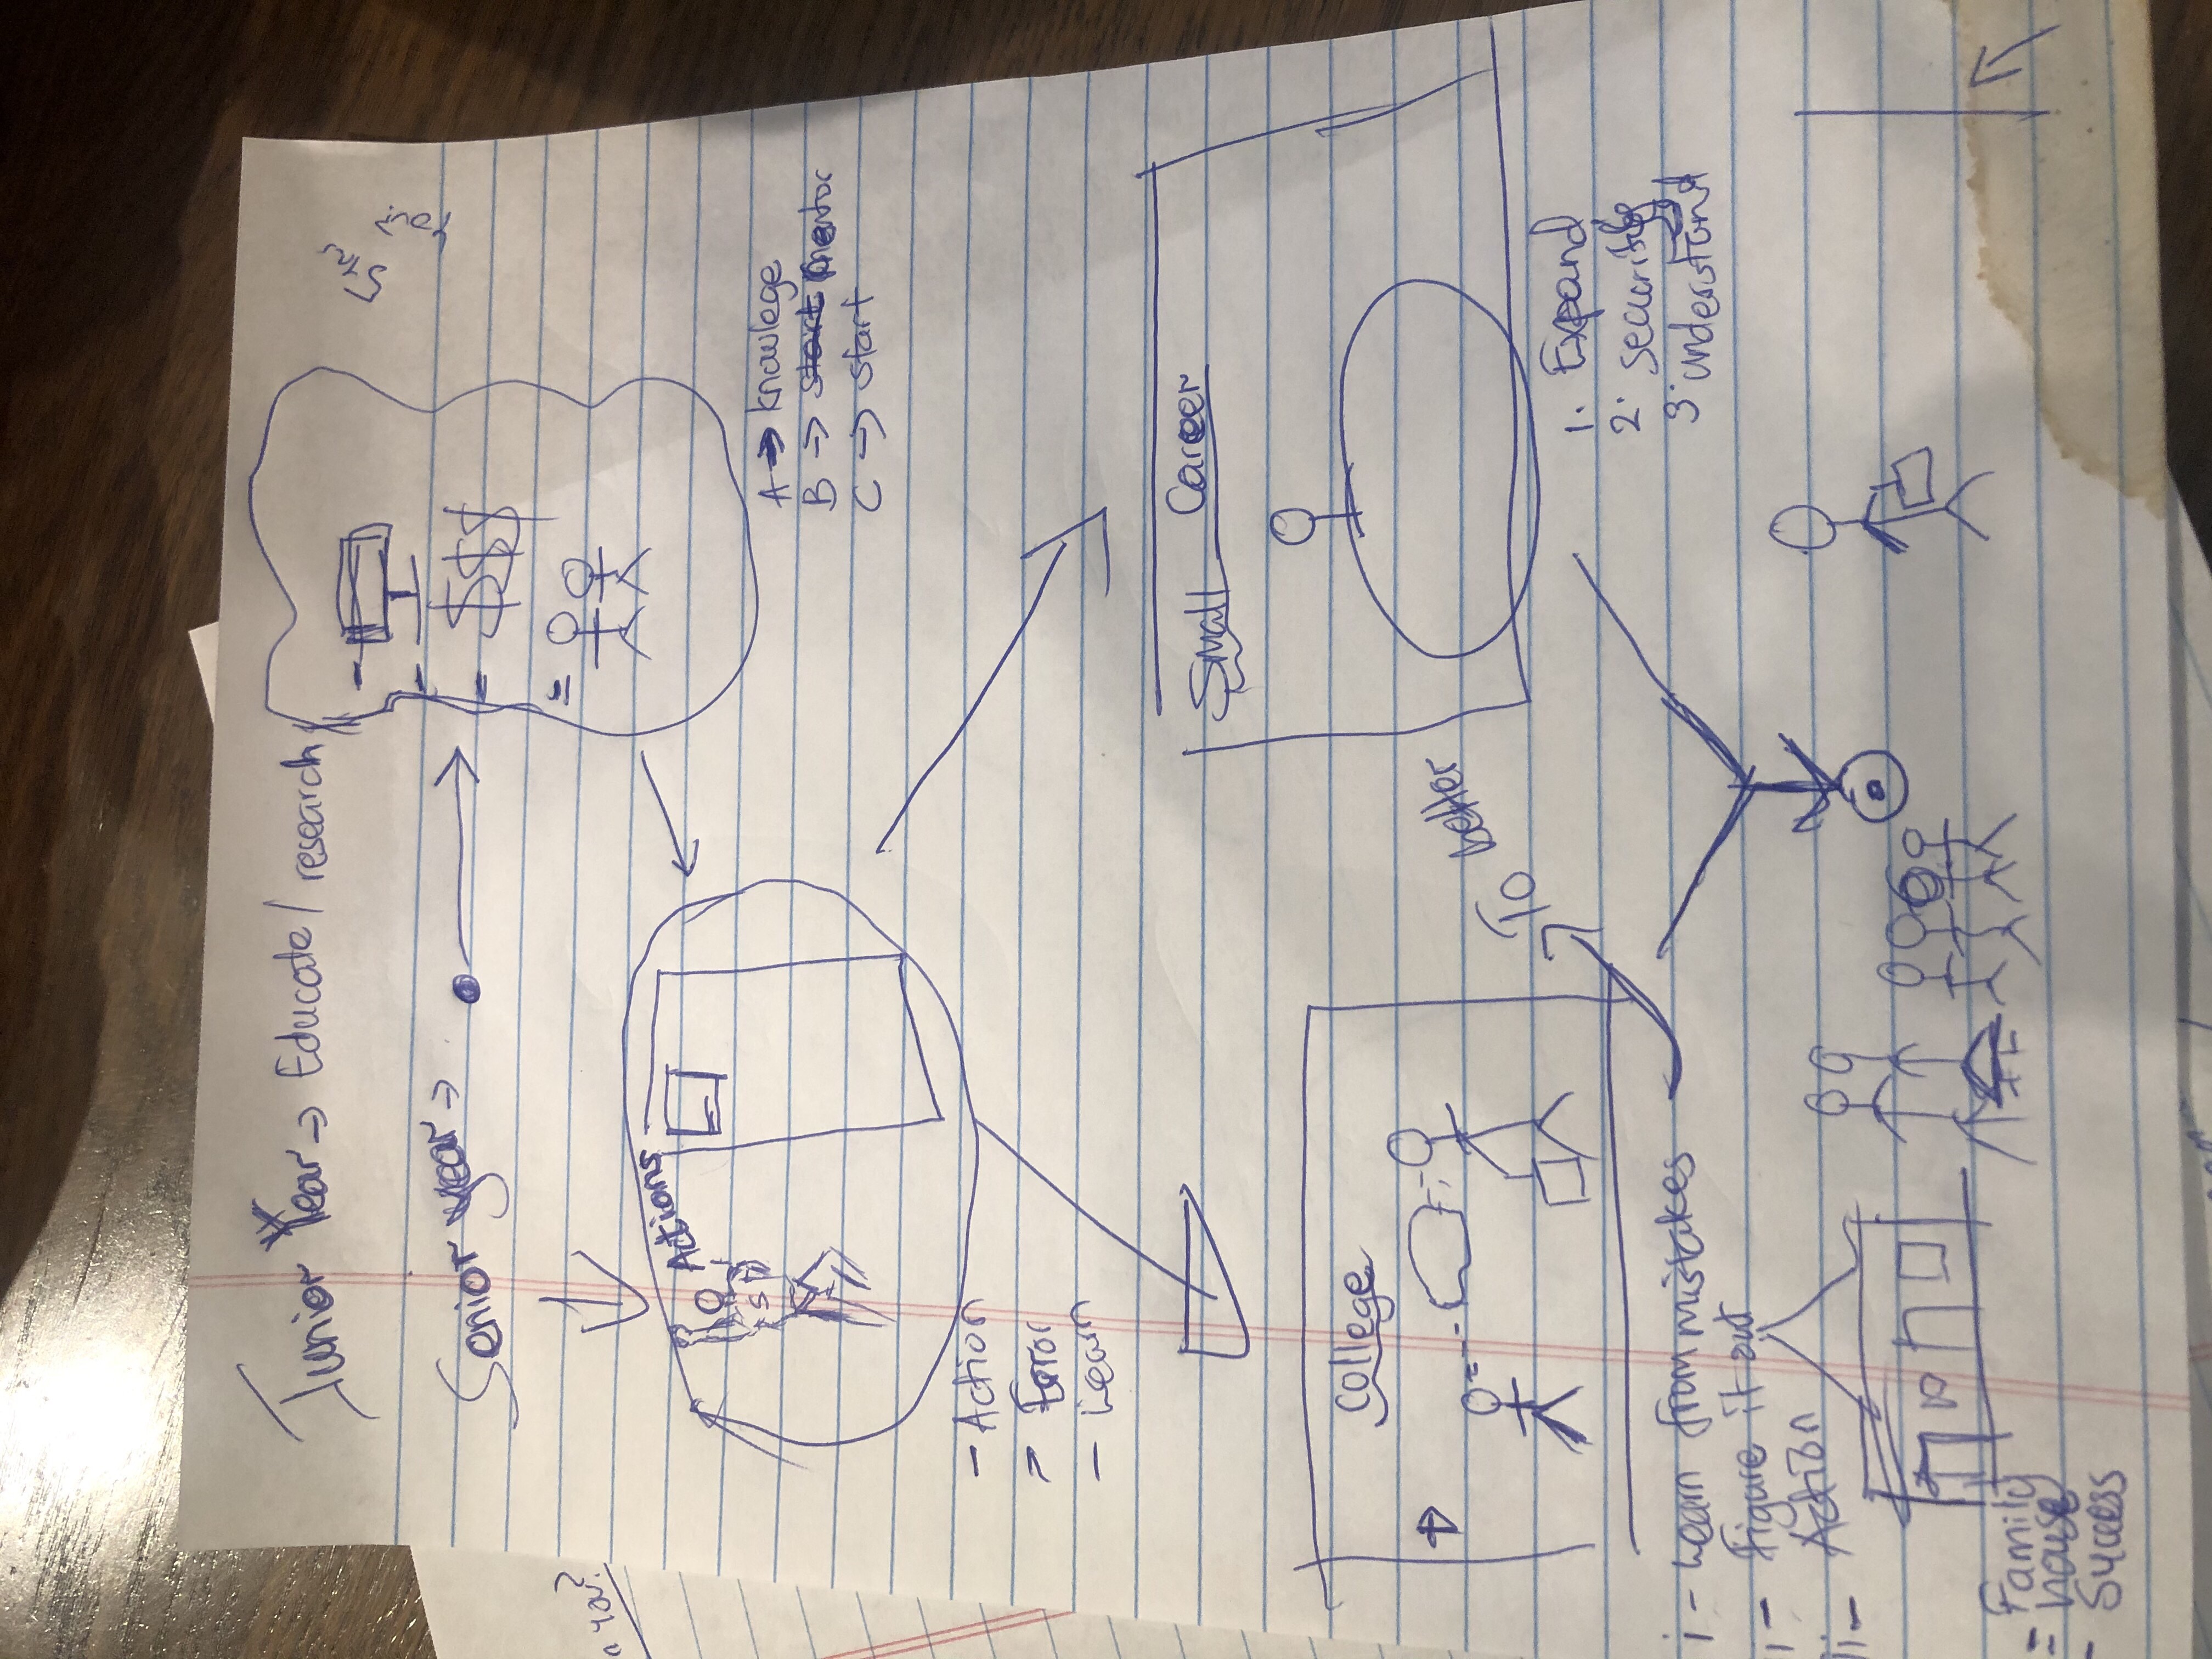 Junior Year → Educate / research
Senior year →
$$$
Actions
S
A → knowlege
B → start mentor
C → start
- Action
> Error
- Learn
Small Career
College
To better
1. Expand
2. security
3. understand
i - Learn from mistakes
- Figure it out
- Action
- Family
= house
- Success
you?